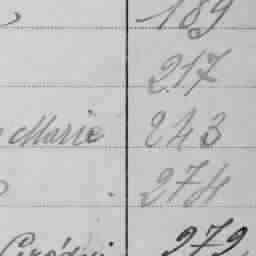 189
217
Marie 243
274
279